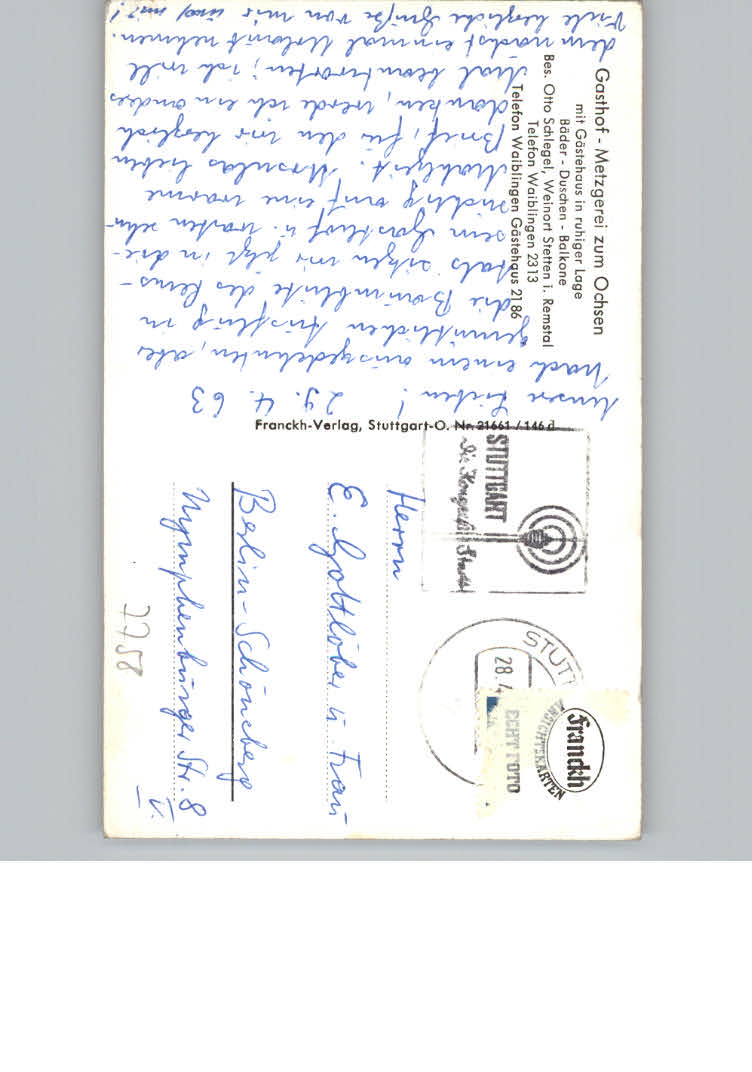 Gasthof - Metzgerei zum Ochsen
mit Gästehaus in ruhiger Lage
Bäder - Duschen - Balkone
Bes. Otto Schlegel, Weinort Stetten i. Remstal
Telefon Waiblingen 2313
Telefon Waiblingen Gästehaus 21 86
Unsere Lieben! 29. 4. 63
Nach einem ausgedehnten, aber
gemütlichen Ausflug in
die Baumblüte des Rems-
tals sitzen wir jetzt in die-
sem Gasthof u. warten sehn-
süchtig auf eine warme
Mahlzeit. Ursulas lieben
Brief, für den wir herzlich
danken, werde ich ein andres
Mal beantworten; ich will
dem nächst einmal Urlaub nehmen.
Viele herzliche Grüße von mir
Franckh-Verlag, Stuttgart-O. Nr. 21661 / 146 d
STUTTGART
Die Kongreß-Stadt
STUTT
28.4
Franckh
ANSICHTSKARTEN
ECHT FOTO
Herrn
E. Gottlöber u. Frau
Berlin-Schöneberg
Nymphenburger Str. 8
II.
2758